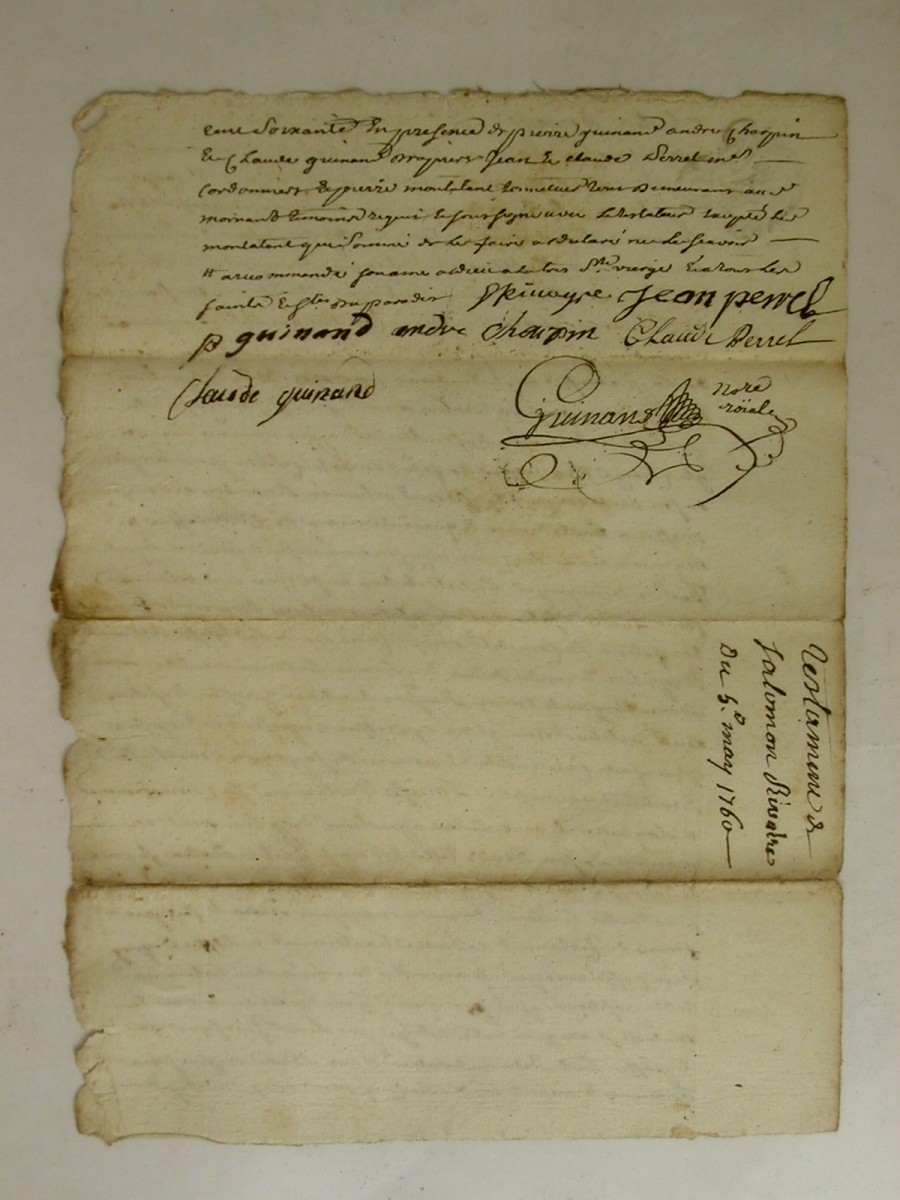 cent soixante En presence de pierre guinand andre Chorpin
Et Claude guinand drapiers Jean Et claude Perrel mes
Cordonniers Et pierre montelant tonnelier tous Demeurans au
mornant temoins requis Et soussignés avec Le testateur Excepté Le
montelant qui sommé de Le faire a declaré ne Le scavoir
a recommandé son ame a dieu a la tres Ste vierge Et a tous Les
saints Et stes du paradis SRivoyre Jean perrel
p guinand andre Chorpin Claude Perrel
Claude guinand Guinand Nore
röiale
Testament de
Salomon Rivoire
Du 5e may 1760